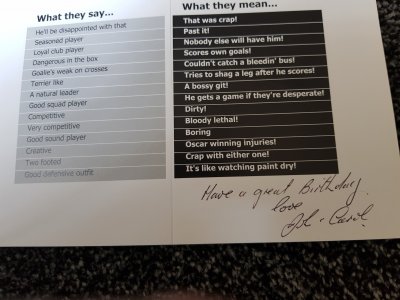 What they say...
He'll be disappointed with that
Seasoned player
Loyal club player
Dangerous in the box
Goalie's weak on crosses
Terrier like
A natural leader
Good squad player
Competitive
Very competitive
Good sound player
Creative
Two footed
Good defensive outfit
What they mean...
That was crap!
Past it!
Nobody else will have him!
Scores own goals!
Couldn't catch a bleedin' bus!
Tries to shag a leg after he scores!
A bossy git!
He gets a game if they're desperate!
Dirty!
Bloody lethal!
Boring
Oscar winning injuries!
Crap with either one!
It's like watching paint dry!
Have a great Birthday
love
Carol